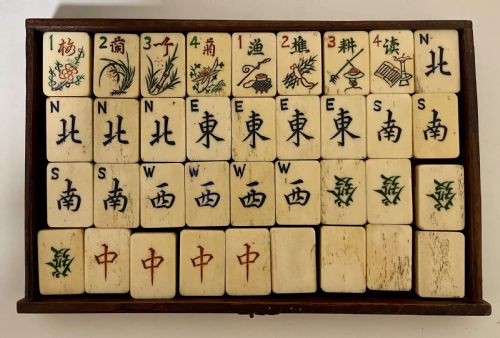 1 梅 2 蘭 3 竹 4 菊 1 漁 2 樵 3 耕 4 读 N 北
N 北 N 北 N 北 E 東 E 東 E 東 E 東 S 南 S 南
S 南 S 南 W 西 W 西 W 西 W 西 發 發 發
發 中 中 中 中